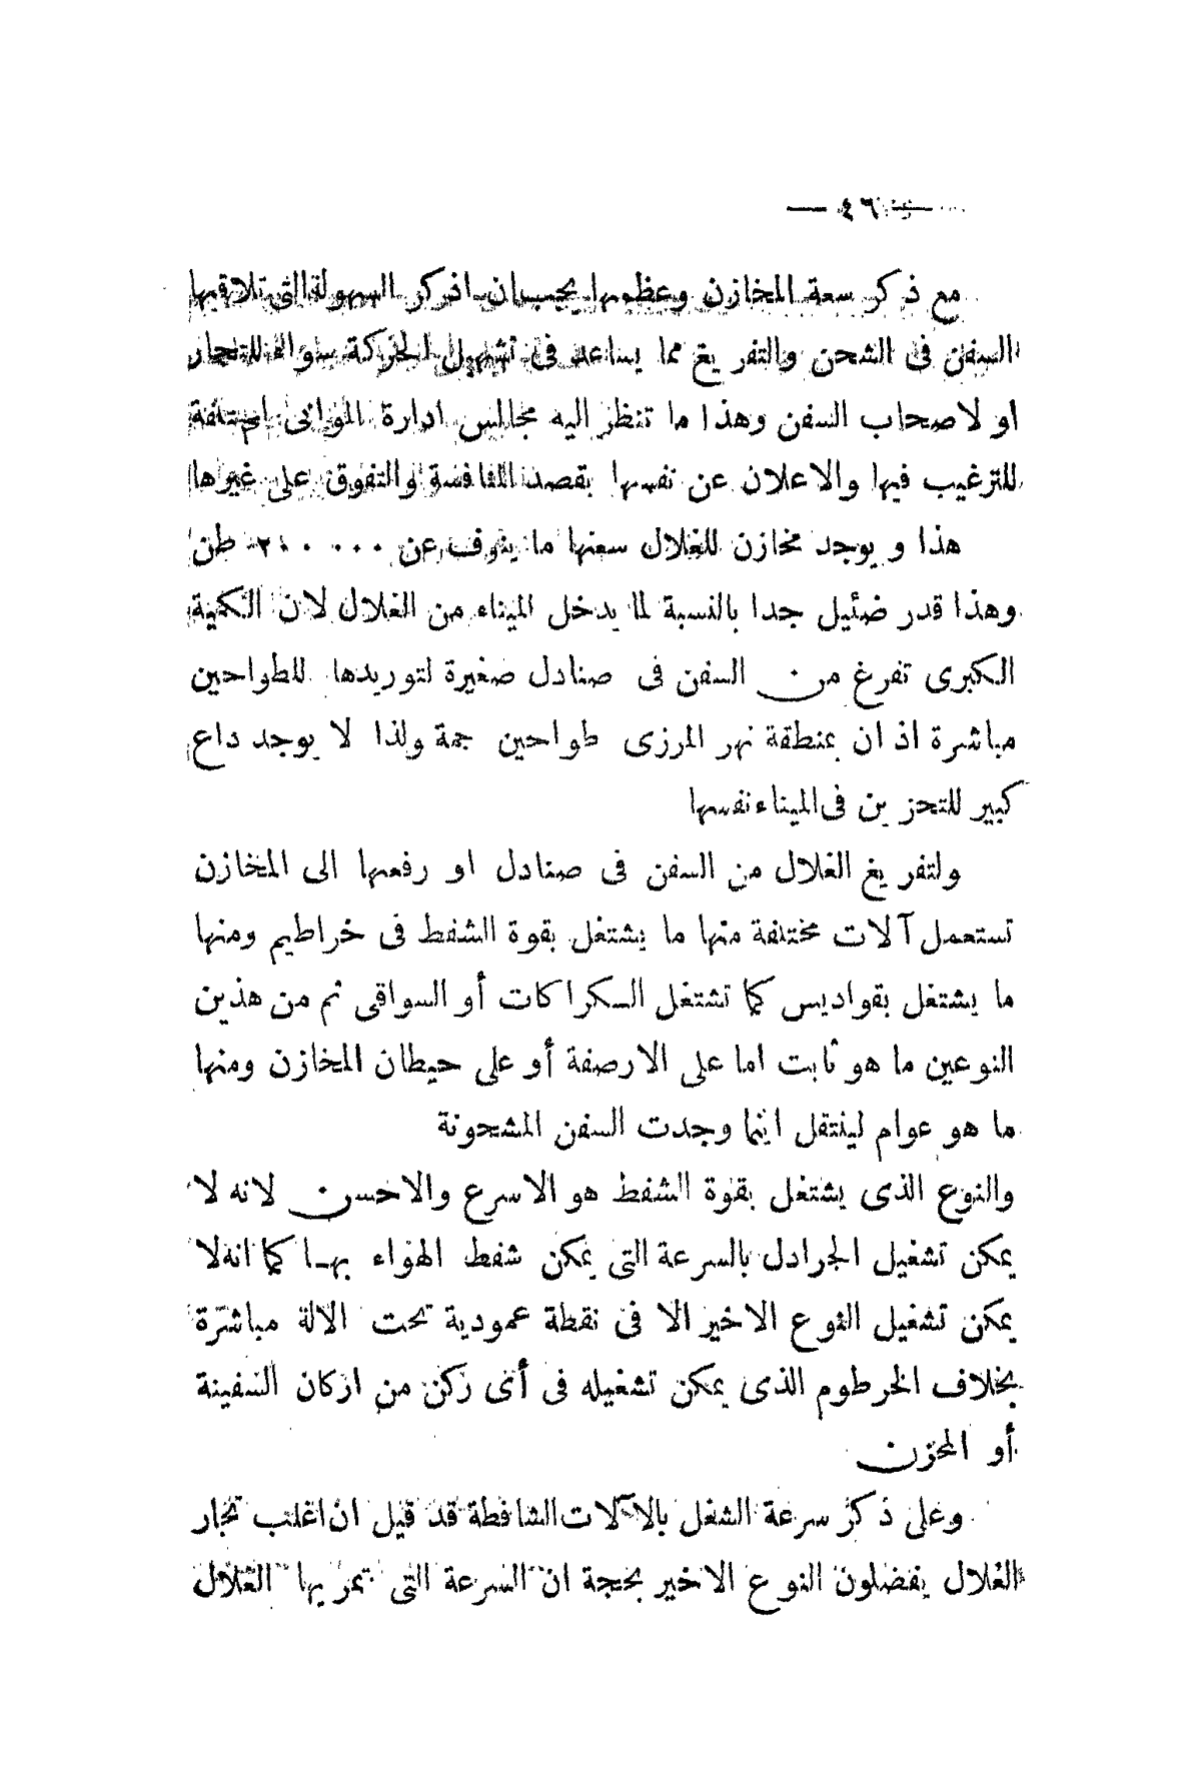 — ٤٦ —
مع ذكر سعة المخازن وعظمها يجب ان اذكر السهولة التي تلاقيها
السفن فى الشحن والتفريغ مما يساعد فى تسهيل الحركة سواء للتجار
او لاصحاب السفن وهذا ما تنظر اليه مجالس ادارة الموانى المختلفة
للترغيب فيها والاعلان عن نفسها بقصد المنافسة والتفوق على غيرها
هذا و يوجد مخازن للغلال سعتها ما ينوف عن ٢٠٠٠٠٠ طن
وهذا قدر ضئيل جدا بالنسبة لما يدخل الميناء من الغلال لان الكمية
الكبرى تفرغ من السفن فى صنادل صغيرة لتوريدها للطواحين
مباشرة اذ ان بمنطقة نهر المرزى طواحين جمة ولذا لا يوجد داع
كبير للتخزين فى الميناء نفسها
ولتفريغ الغلال من السفن فى صنادل او رفعها الى المخازن
تستعمل آلات مختلفة منها ما يشتغل بقوة الشفط فى خراطيم ومنها
ما يشتغل بقواديس كما تشتغل السكراكات أو السواقى ثم من هذين
النوعين ما هو ثابت اما على الارصفة أو على حيطان المخازن ومنها
ما هو عوام لينتقل اينما وجدت السفن المشحونة
والنوع الذى يشتغل بقوة الشفط هو الاسرع والاحسن لانه لا
يمكن تشغيل الجرادل بالسرعة التى يمكن شفط الهواء بها كما انه لا
يمكن تشغيل النوع الاخير الا فى نقطة عمودية تحت الالة مباشرة
بخلاف الخرطوم الذى يمكن تشغيله فى أى ركن من اركان السفينة
أو المخزن
وعلى ذكر سرعة الشغل بالآلات الشافطة قد قيل ان اغلب تجار
الغلال يفضلون النوع الاخير بحجة ان السرعة التى تمر بها الغلال